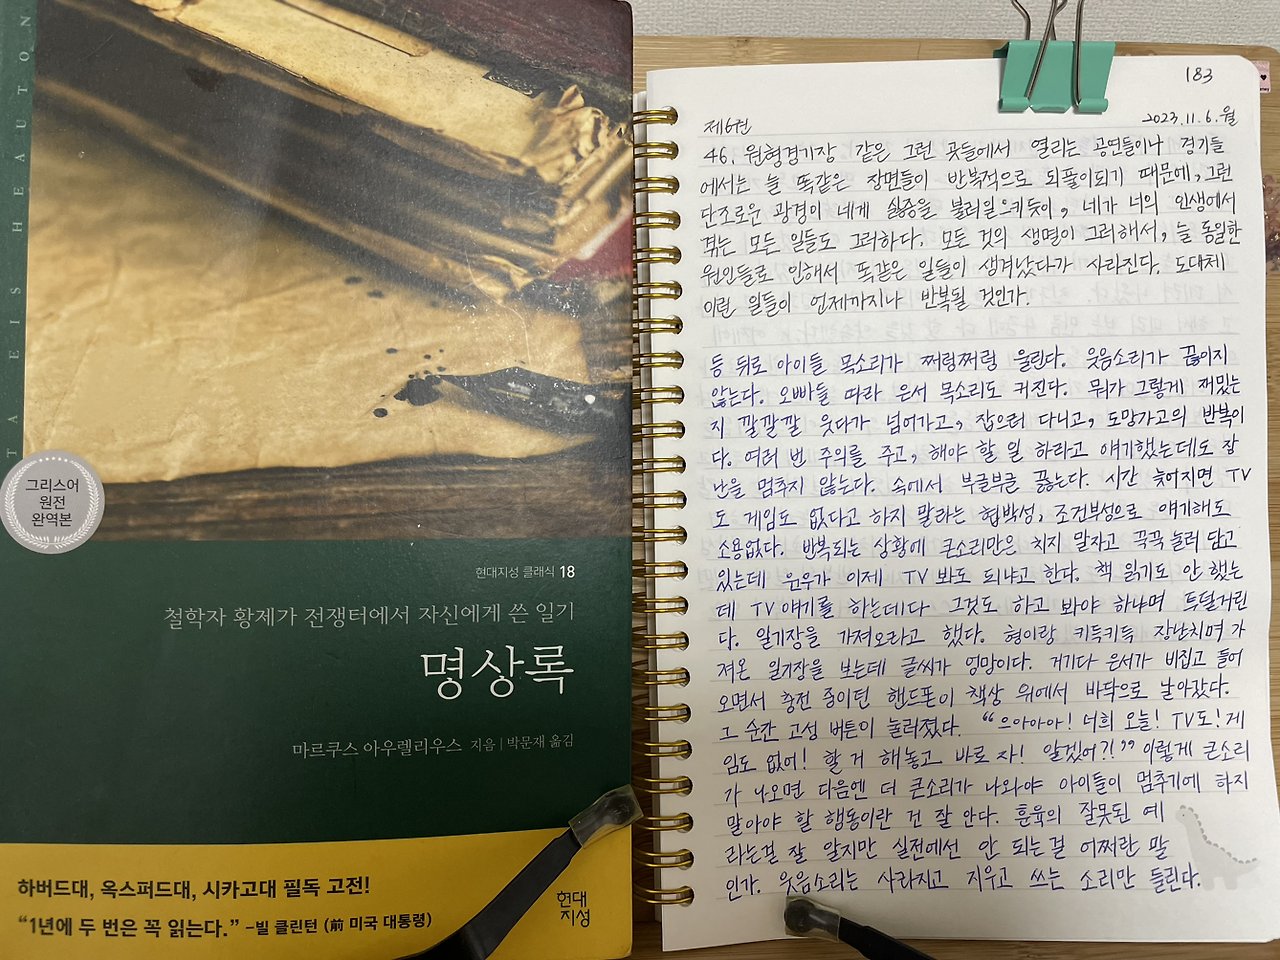 TA EIS HEAUTON
그리스어
원전
완역본
현대지성 클래식 18
철학자 황제가 전쟁터에서 자신에게 쓴 일기
명상록
마르쿠스 아우렐리우스 지음 | 박문재 옮김
하버드대, 옥스퍼드대, 시카고대 필독 고전!
“1년에 두 번은 꼭 읽는다.” –빌 클린턴 (前 미국 대통령)
현대
지성
183
제6권
2023.11.6.월
46. 원형경기장 같은 그런 곳들에서 열리는 공연들이나 경기들
에서는 늘 똑같은 장면들이 반복적으로 되풀이되기 때문에, 그런
단조로운 광경이 네게 싫증을 불러일으키듯이, 네가 너의 인생에서
겪는 모든 일들도 그러하다. 모든 것의 생멸이 그러해서, 늘 동일한
원인들로 인해서 똑같은 일들이 생겨났다가 사라진다. 도대체
이런 일들이 언제까지나 반복될 것인가.
등 뒤로 아이들 목소리가 쩌렁쩌렁 울린다. 웃음소리가 끊이지
않는다. 오빠들 따라 은서 목소리도 커진다. 뭐가 그렇게 재밌는
지 깔깔깔 웃다가 넘어가고, 잡으러 다니고, 도망가고의 반복이
다. 여러 번 주의를 주고, 해야 할 일 하라고 얘기했는데도 장
난을 멈추지 않는다. 속에서 부글부글 끓는다. 시간 늦어지면 TV
도 게임도 없다고 하지 말라는 협박성, 조건부성으로 얘기해도
소용없다. 반복되는 상황에 큰소리만은 치지 말자고 꾹꾹 눌러 담고
있는데 윤우가 이제 TV 봐도 되냐고 한다. 책 읽기도 안 했는
데 TV 얘기를 하는데다 그것도 하고 봐야 하냐며 투덜거린
다. 일기장을 가져오라고 했다. 형이랑 키득키득 장난치며 가
져온 일기장을 보는데 글씨가 엉망이다. 거기다 은서가 비집고 들어
오면서 충전 중이던 핸드폰이 책상 위에서 바닥으로 날아갔다.
그 순간 고성 버튼이 눌러졌다. “으아아아! 너희 오늘! TV도! 게
임도 없어! 할 거 해놓고 바로 자! 알겠어?!” 이렇게 큰소리
가 나오면 다음엔 더 큰소리가 나와야 아이들이 멈추기에 하지
말아야 할 행동이란 건 잘 안다. 훈육의 잘못된 예
라는걸 잘 알지만 실전에선 안 되는걸 어쩌란 말
인가. 웃음소리는 사라지고 지우고 쓰는 소리만 들린다.